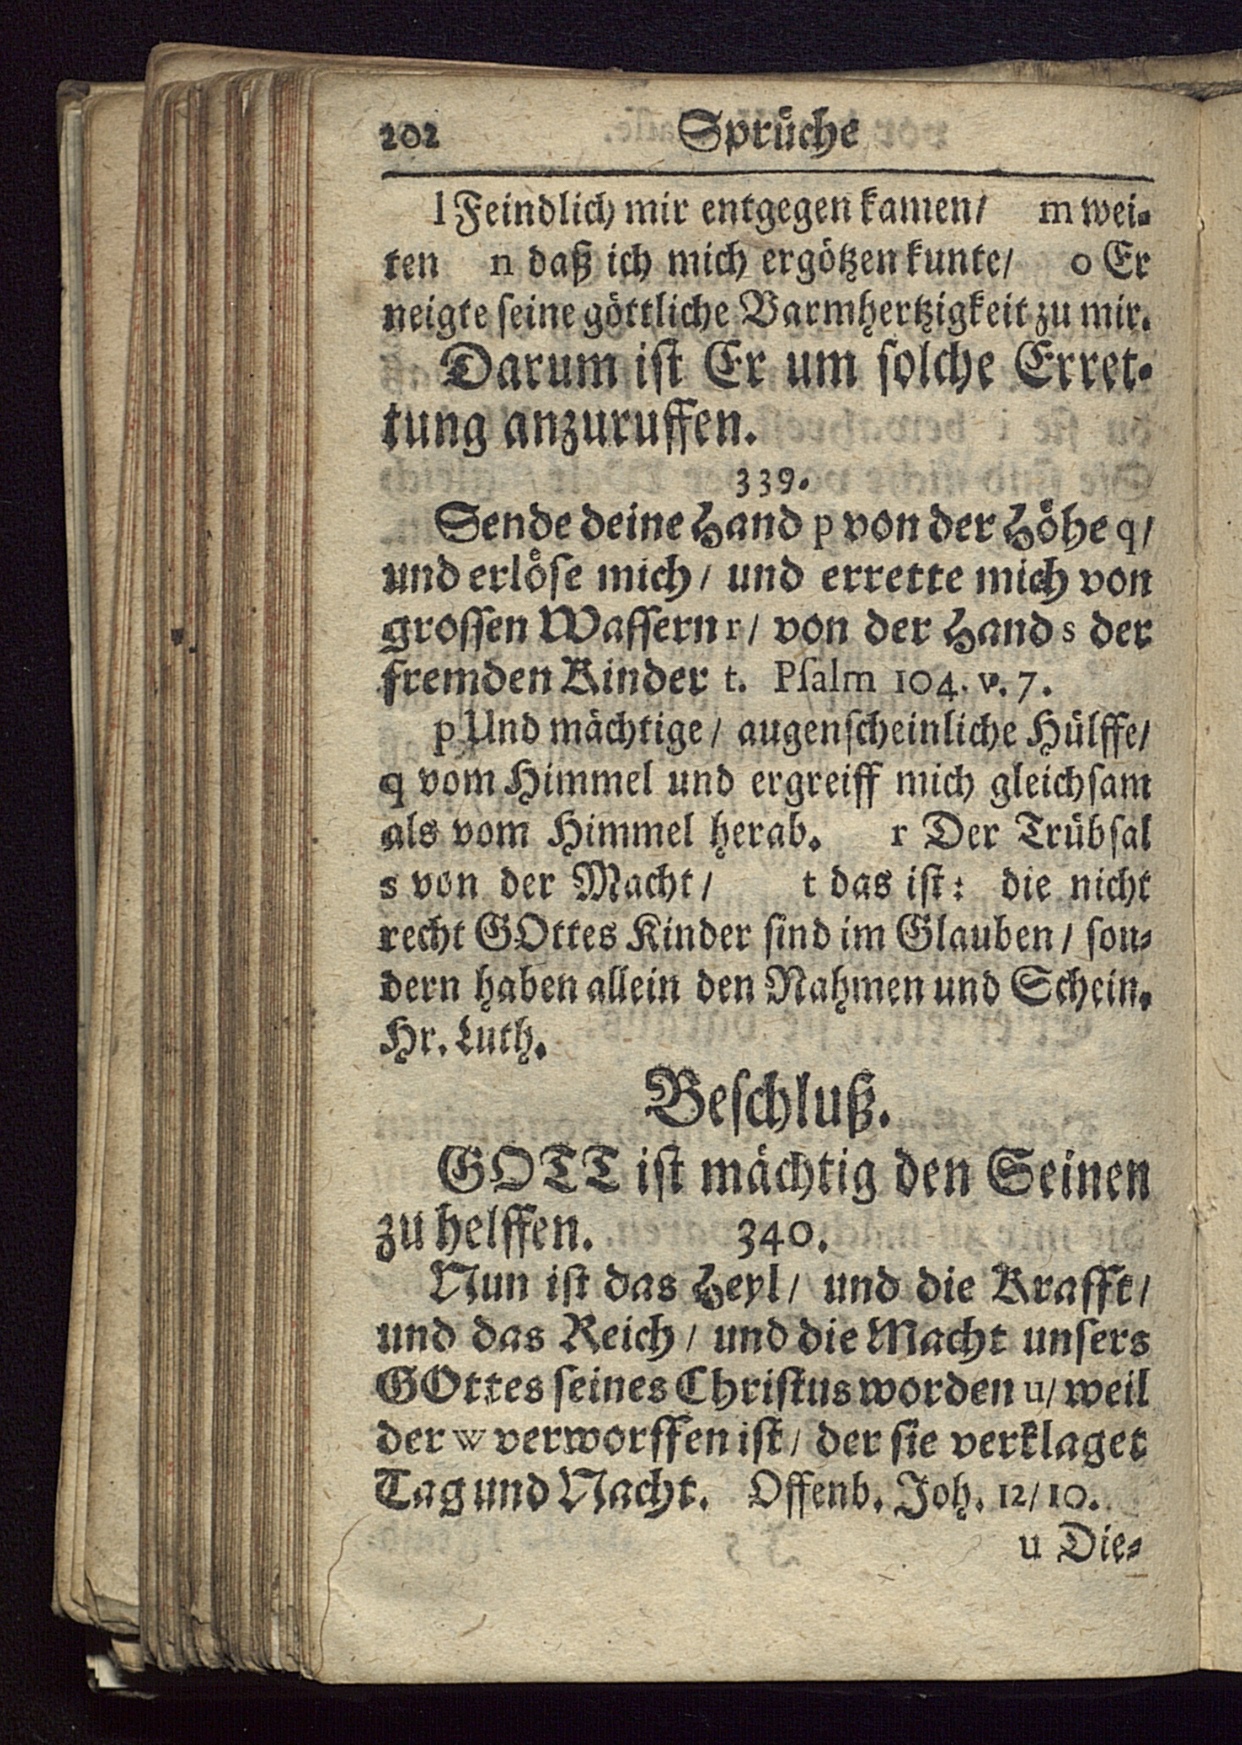 202 Sprüche
l Feindlich mir entgegen kamen/ m wei-
ten n daß ich mich ergötzen kunte/ o Er
neigte seine göttliche Barmhertzigkeit zu mir.
Darum ist Er um solche Erret-
tung anzuruffen.
339.
Sende deine Hand p von der Höhe q/
und erlöse mich/ und errette mich von
grossen Wassern r/ von der Hand s der
fremden Kinder t. Psalm 104. v. 7.
p Und mächtige/ augenscheinliche Hülffe/
q vom Himmel und ergreiff mich gleichsam
als vom Himmel herab. r Der Trübsal
s von der Macht/ t das ist: die nicht
recht GOttes Kinder sind im Glauben/ son-
dern haben allein den Nahmen und Schein.
Hr. Luth.
Beschluß.
GOTT ist mächtig den Seinen
zu helffen. 340.
Nun ist das Heyl/ und die Krafft/
und das Reich/ und die Macht unsers
GOttes seines Christus worden u/ weil
der w verworffen ist/ der sie verklaget
Tag und Nacht. Offenb. Joh. 12/10.
u Die-